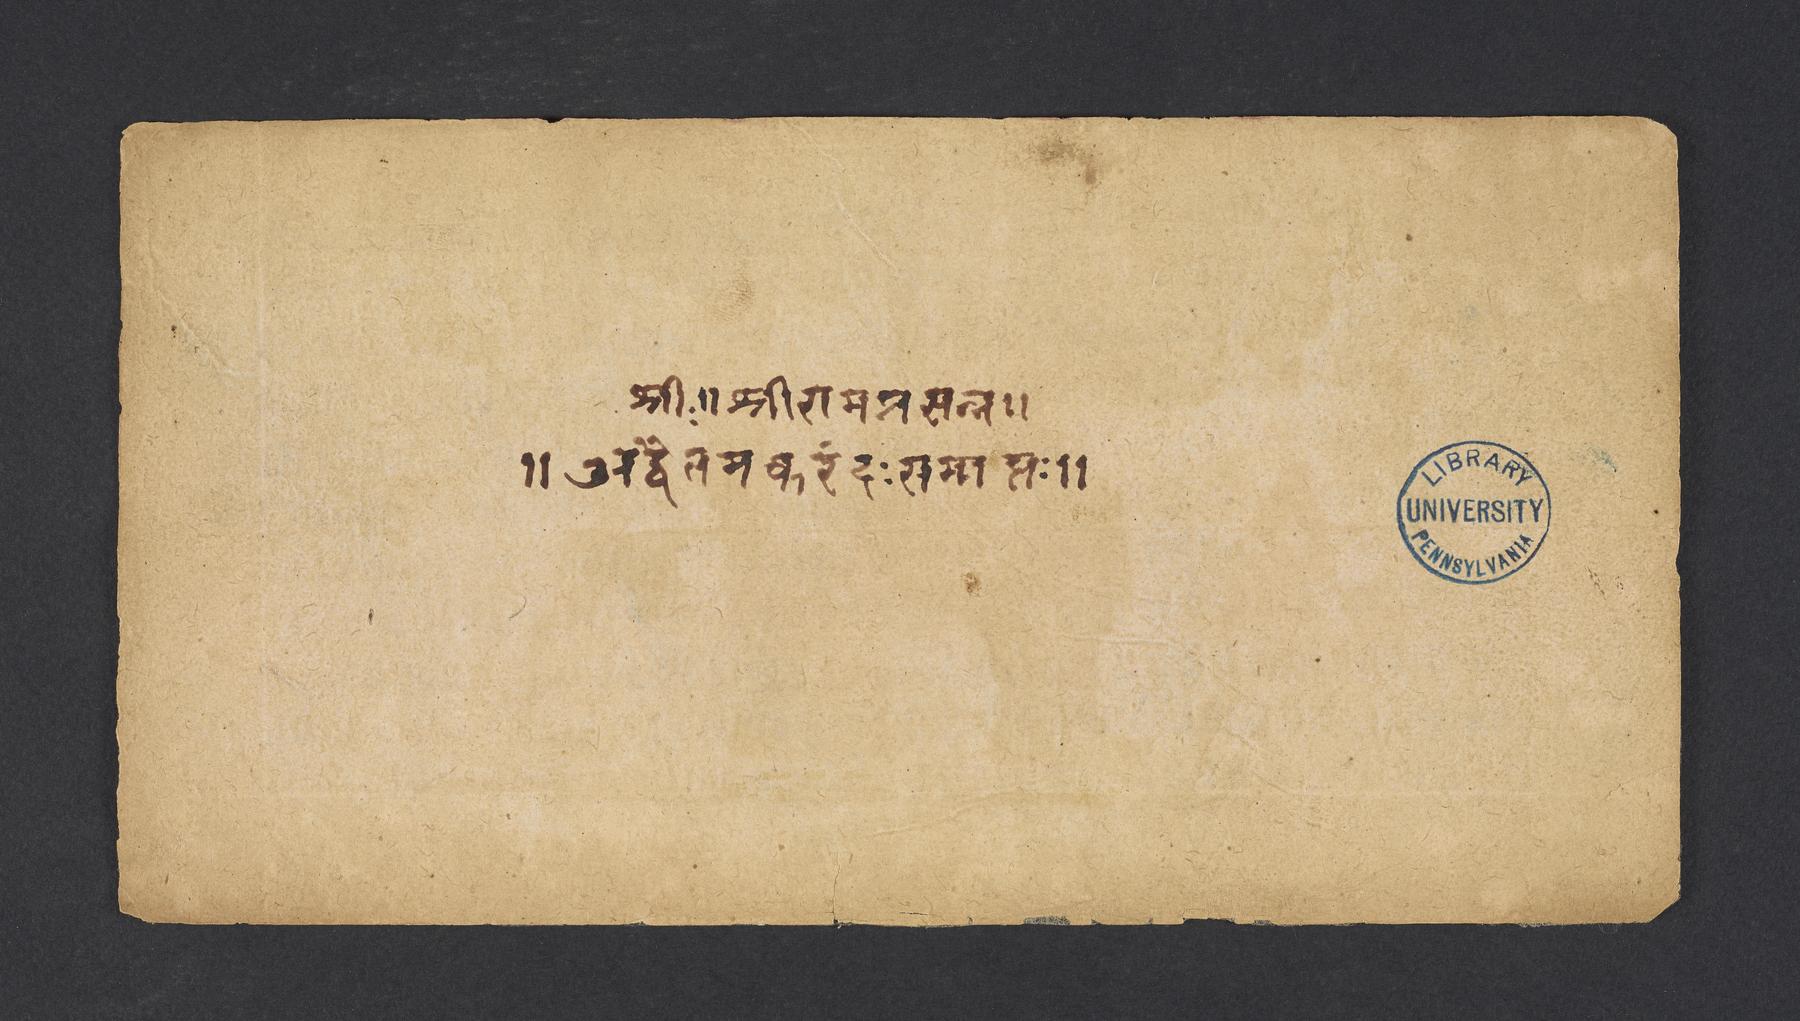 श्रीः॥ श्रीरामप्रसन्न॥
॥ अद्वैतमकरंदः समाप्तः॥
LIBRARY
UNIVERSITY
PENNSYLVANIA